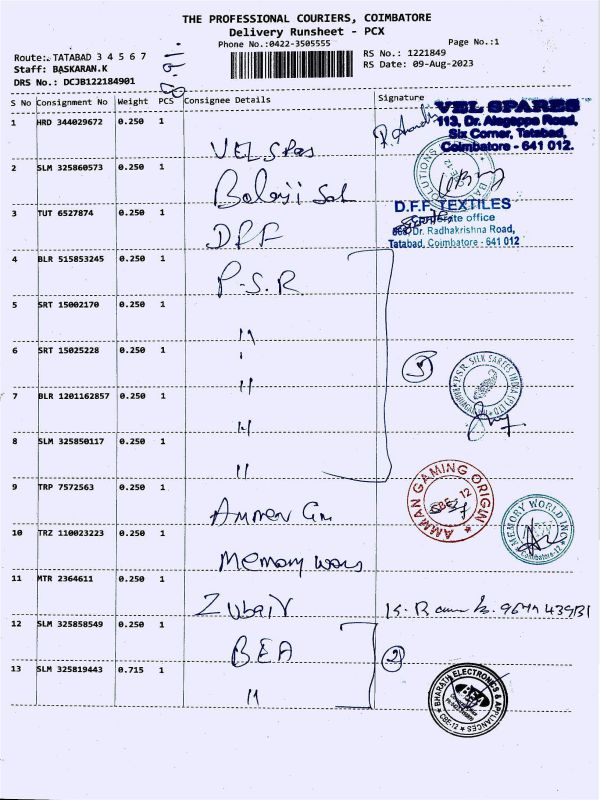 THE PROFESSIONAL COURIERS, COIMBATORE
Delivery Runsheet - PCX
Phone No.:0422-3505555
Page No.:1
Route: TATABAD 3 4 5 6 7
RS No.: 1221849
Staff: BASKARAN.K
RS Date: 09-Aug-2023
DRS No.: DCJB122184901
S No Consignment No Weight PCS Consignee Details Signature
VEL SPARES
113, Dr. Alagappa Road,
Six Corner, Tatabad,
Coimbatore - 641 012.
1 HRD 344029672 0.250 1 VEL Spares
2 SLM 325860573 0.250 1 Balaji Sol
SOLUTIONS
3 TUT 6527874 0.250 1 DFF
D.F.F. TEXTILES
Corporate office
Dr. Radhakrishna Road,
Tatabad, Coimbatore - 641 012
4 BLR 515853245 0.250 1 P.S.R
5 SRT 15002170 0.250 1 "
6 SRT 15025228 0.250 1 "
5
P.S.R. SILK SAREES INDIA (P) LTD
7 BLR 1201162857 0.250 1 "
8 SLM 325850117 0.250 1 "
9 TRP 7572563 0.250 1 Amman
AMMAN GAMING ORIGIN
CBE-12
10 TRZ 110023223 0.250 1 Memory
MEMORY WORLD INC
Coimbatore-12
11 MTR 2364611 0.250 1 Zubair
12 SLM 325858549 0.250 1 BEA
2
13 SLM 325819443 0.715 1 "
BHARATH ELECTRONICS & APPLIANCES
BEA
CBE-12